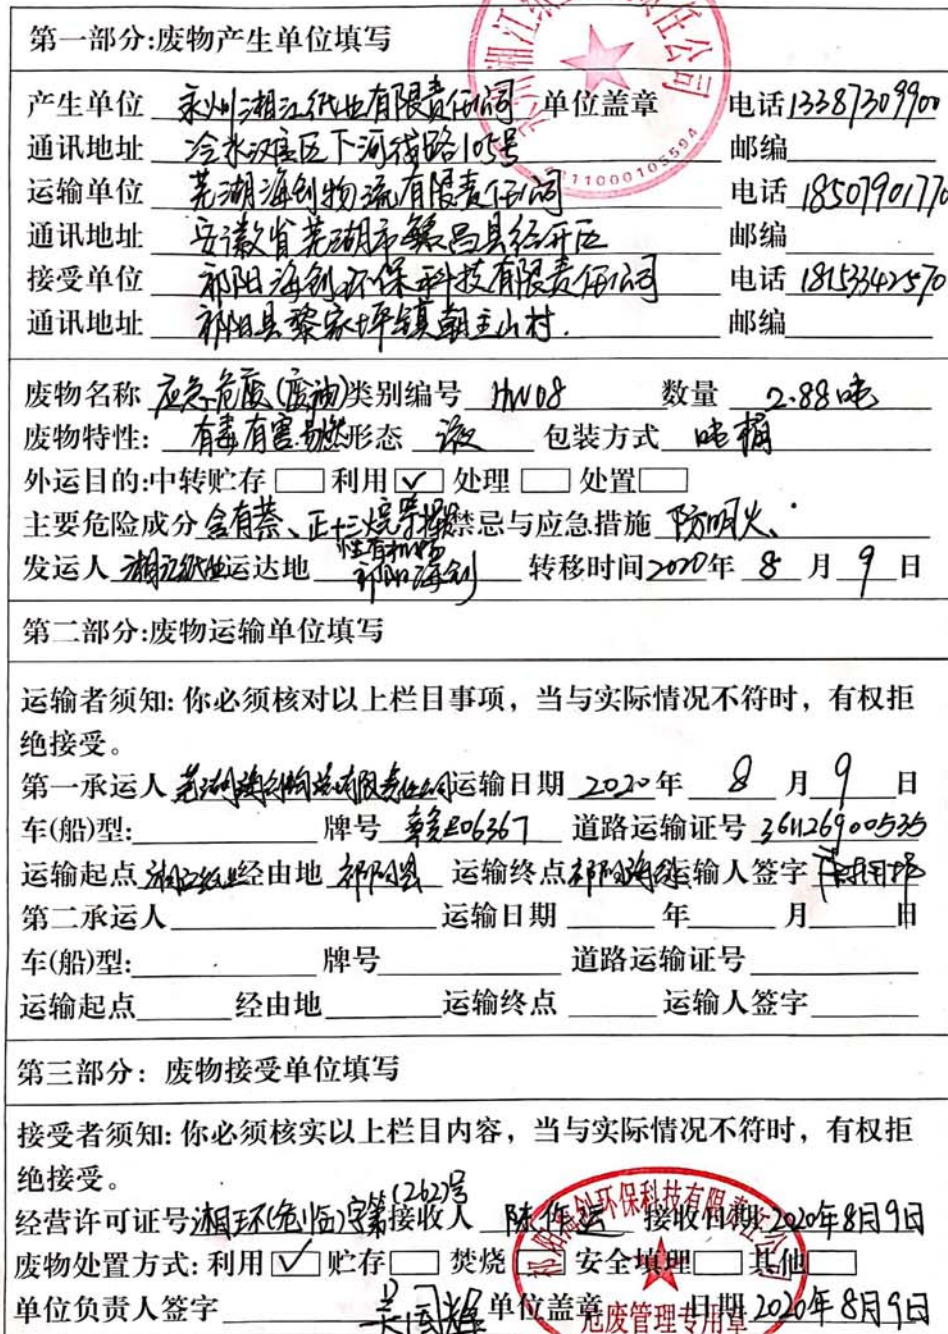 第一部分:废物产生单位填写
产生单位 永州湘江纸业有限责任公司 单位盖章 电话 13387309900
通讯地址 冷水滩区下河线路105号 邮编
运输单位 芜湖海创物流有限责任公司 电话 18507901770
通讯地址 安徽省芜湖市繁昌县经开区 邮编
接受单位 祁阳海创环保科技有限责任公司 电话 18153342570
通讯地址 祁阳县黎家坪镇朝主山村. 邮编
废物名称 应急危废(废油) 类别编号 HW08 数量 2.88吨
废物特性: 有毒有害易燃 形态 液 包装方式 吨桶
外运目的:中转贮存 □ 利用 ☑ 处理 □ 处置 □
主要危险成分 含有萘、正十三烷等挥发性有机物 禁忌与应急措施 防明火、
发运人 湘江纸业 运达地 祁阳海创 转移时间 2020年 8 月 9 日
第二部分:废物运输单位填写
运输者须知: 你必须核对以上栏目事项，当与实际情况不符时，有权拒
绝接受。
第一承运人 芜湖海创物流有限责任公司 运输日期 2020年 8 月 9 日
车(船)型: 牌号 赣E06367 道路运输证号 361126900535
运输起点 湘江纸业 经由地 祁阳县 运输终点 祁阳海创 运输人签字
第二承运人 运输日期 年 月 日
车(船)型: 牌号 道路运输证号
运输起点 经由地 运输终点 运输人签字
第三部分：废物接受单位填写
接受者须知: 你必须核实以上栏目内容，当与实际情况不符时，有权拒
绝接受。
经营许可证号 湘环(危临)字第(262)号 接收人 陈作 接收日期 2020年8月9日
废物处置方式: 利用 ☑ 贮存 □ 焚烧 □ 安全填埋 □ 其他 □
单位负责人签字 单位盖章 日期 2020年8月9日
祁阳海创环保科技有限责任公司
危废管理专用章